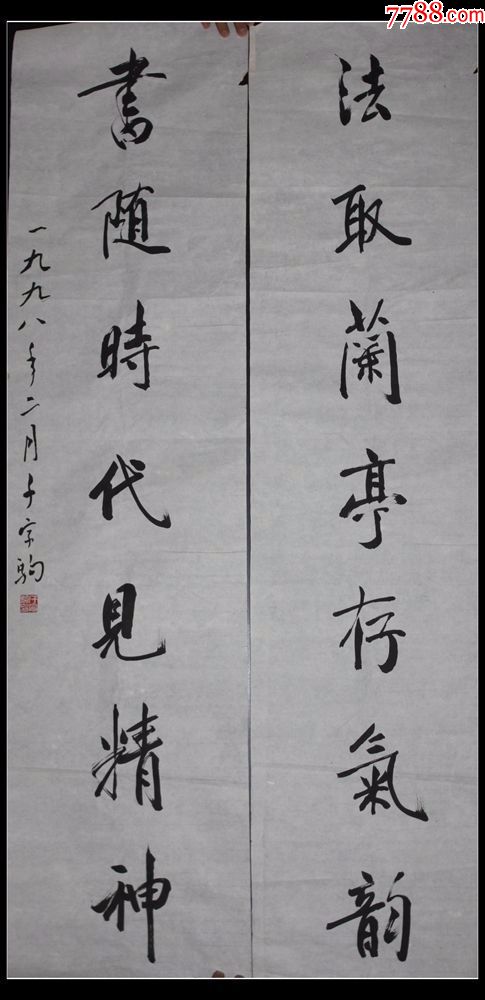 7788.com
法取蘭亭存氣韵
書随時代見精神
一九九八年二月于宗驹